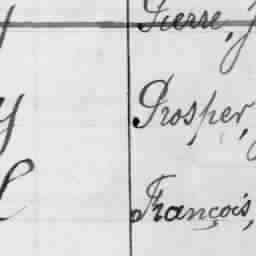 Pierre,
Prosper,
François,